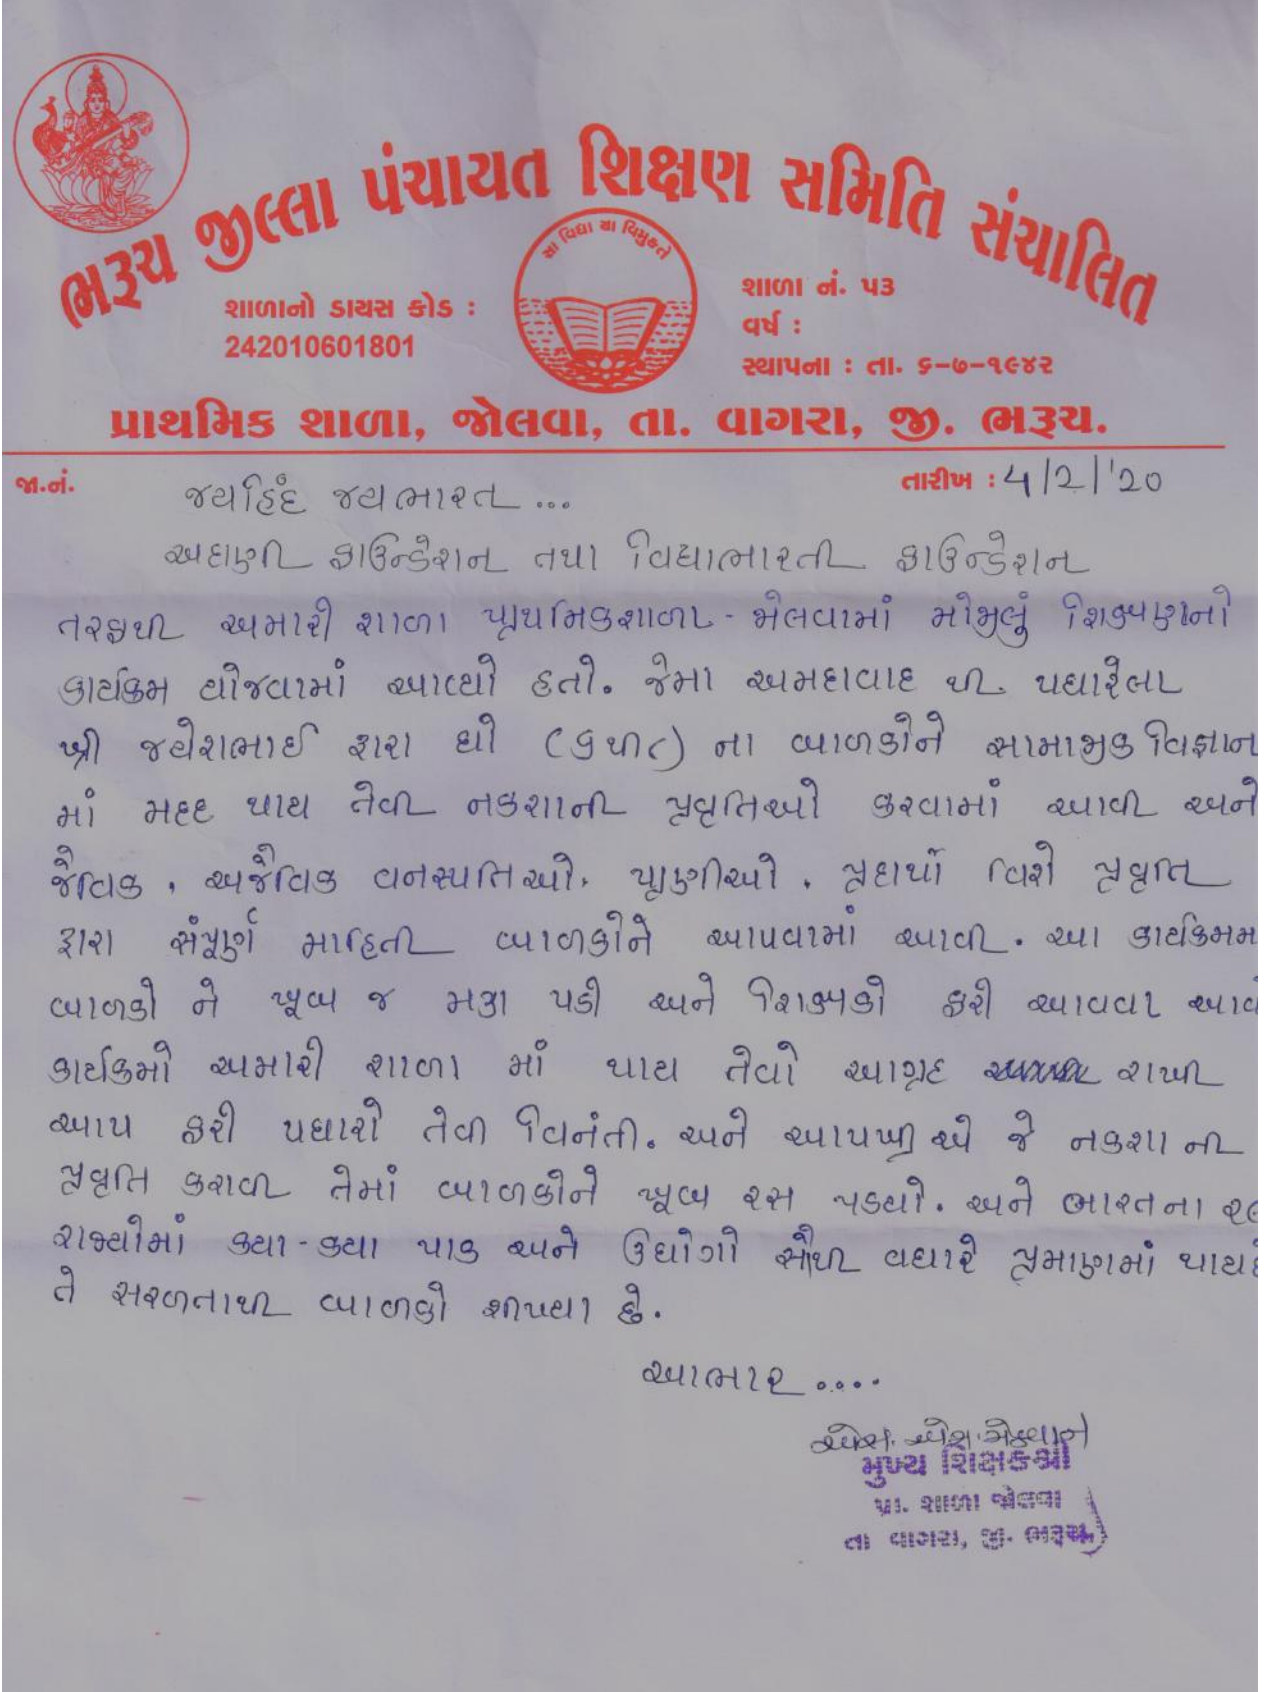 ભરૂચ જીલ્લા પંચાયત શિક્ષણ સમિતિ સંચાલિત
સા વિદ્યા યા વિમુક્તે
શાળાનો ડાયસ કોડ :
242010601801
શાળા નં. ૫૩
વર્ષ :
સ્થાપના : તા. ૬-૭-૧૯૪૨
પ્રાથમિક શાળા, જોલવા, તા. વાગરા, જી. ભરૂચ.
જા.નં. તારીખ : 4/2/'20
જયહિંદ જયભારત ...
અદાણી ફાઉન્ડેશન તથા વિદ્યાભારતી ફાઉન્ડેશન
તરફથી અમારી શાળા પ્રાથમિકશાળા - જોલવામાં મોજીલું શિક્ષણનો
કાર્યક્રમ યોજવામાં આવ્યો હતો. જેમા અમદાવાદ થી પધારેલા
શ્રી જયેશભાઈ દ્વારા ધો (૬ થી ૮) ના બાળકોને સામાજીક વિજ્ઞાન
માં મદદ થાય તેવી નકશાની પ્રવૃતિઓ કરવામાં આવી અને
જૈવિક, અજૈવિક વનસ્પતિઓ, પ્રાણીઓ, પ્રદાર્થો વિશે પ્રવૃતિ
દ્વારા સંપૂર્ણ માહિતી બાળકોને આપવામાં આવી. આ કાર્યક્રમમ
બાળકો ને ખૂબ જ મઝા પડી અને શિક્ષકો ફરી આવવા
કાર્યક્રમો અમારી શાળા માં થાય તેવો આગ્રહ રાખી
આપ ફરી પધારો તેવી વિનંતી. અને આપશ્રી એ જે નકશા ની
પ્રવૃતિ કરાવી તેમાં બાળકોને ખૂબ રસ પડયો. અને ભારતના
રાજ્યોમાં ક્યા - ક્યા પાક અને ઉદ્યોગો સૌથી વધારે પ્રમાણમાં થાય
તે સરળતાથી બાળકો શીખ્યા છે.
આભાર ....
એસ. એસ.
મુખ્ય શિક્ષકશ્રી
પ્રા. શાળા જોલવા
તા વાગરા, જી. ભરૂચ.